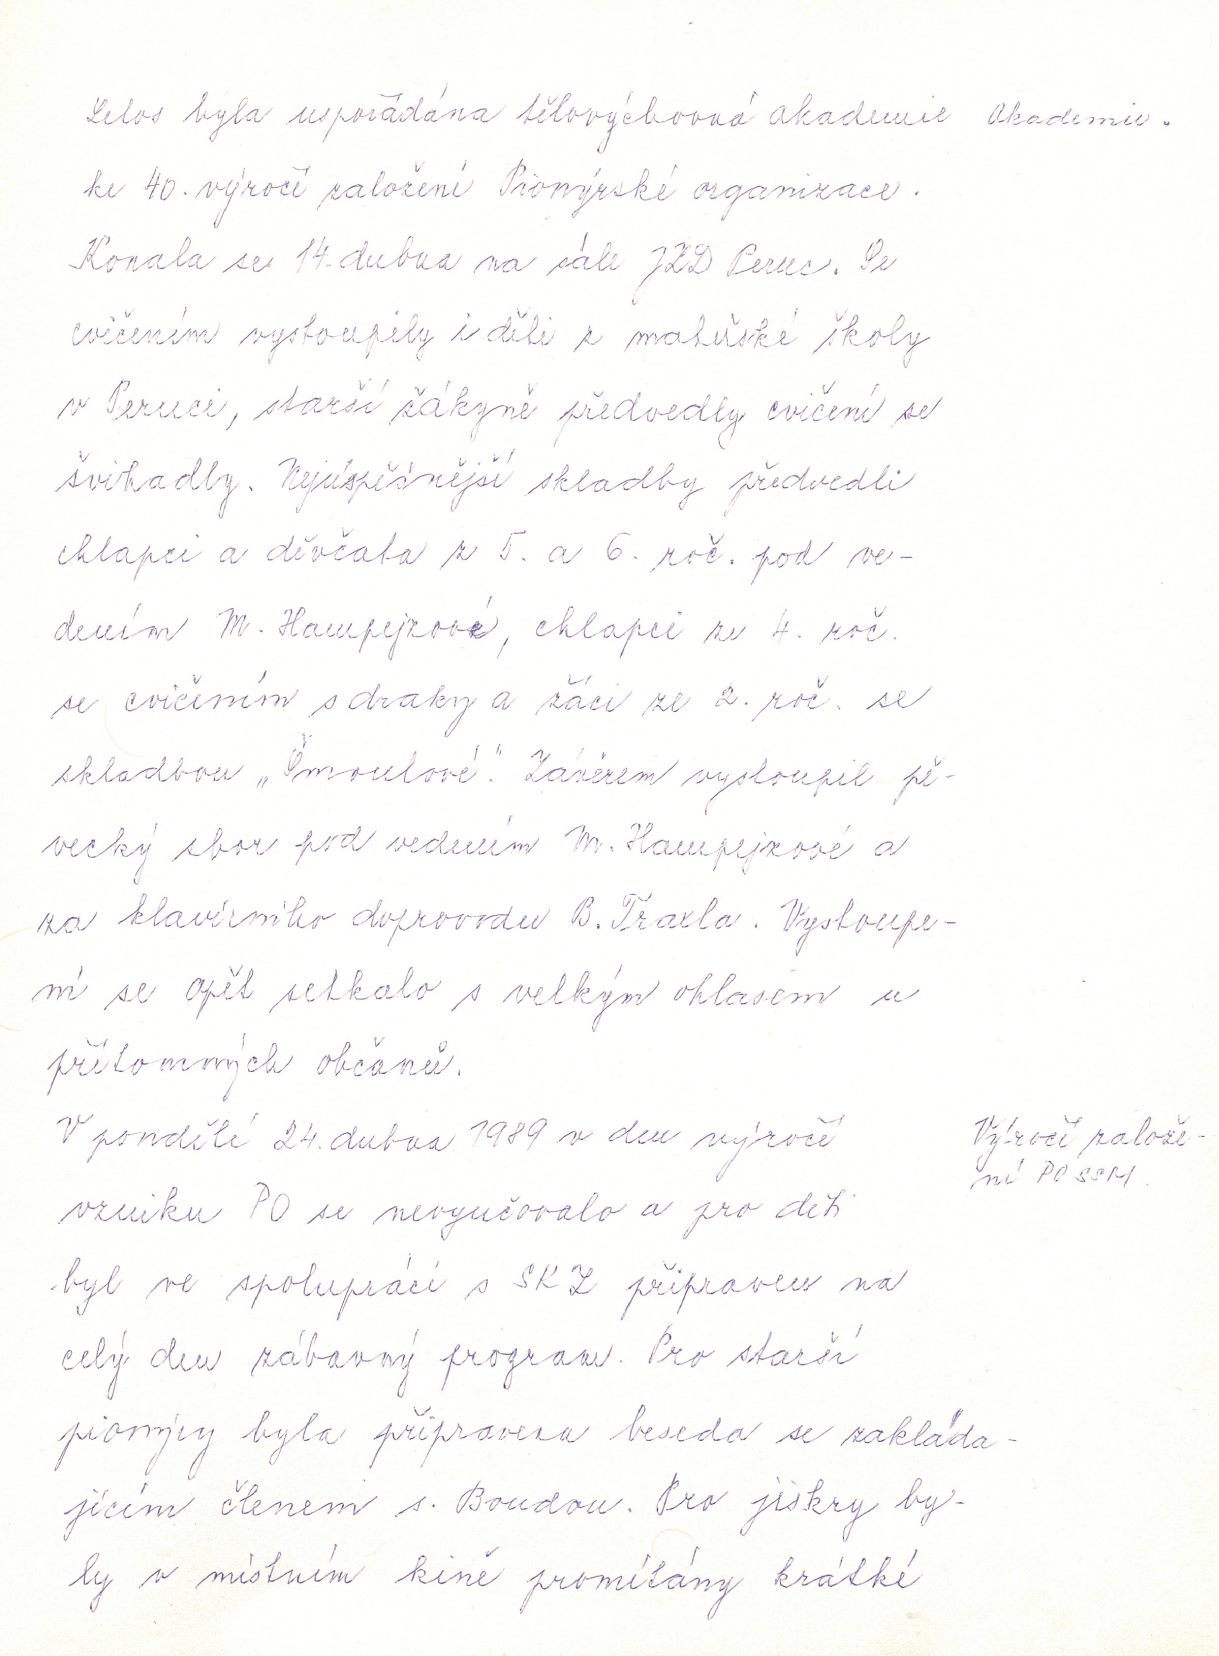 Letos byla uspořádána tělovýchovná akademie
Akademie.
ke 40. výročí založení Pionýrské organizace.
Konala se 14. dubna na sále JZD Peruc. Se
cvičením vystoupily i děti z mateřské školy
v Peruci, starší žákyně předvedly cvičení se
švihadly. Nejúspěšnější skladby předvedli
chlapci a děvčata z 5. a 6. roč. pod ve-
dením M. Hampejzové, chlapci ze 4. roč.
se cvičením s draky a žáci ze 2. roč. se
skladbou „Šmoulové". Závěrem vystoupil pě-
vecký sbor pod vedením M. Hampejzové a
za klavírního doprovodu B. Traxla. Vystoupe-
ní se opět setkalo s velkým ohlasem u
přítomných občanů.
V pondělí 24. dubna 1989 v den výročí
Výročí založe-
ní PO SSM.
vzniku PO se nevyučovalo a pro děti
byl ve spolupráci s SKZ připraven na
celý den zábavný program. Pro starší
pionýry byla připravena beseda se zakláda-
jícím členem s. Boudou. Pro jiskry by-
ly v místním kině promítány krátké